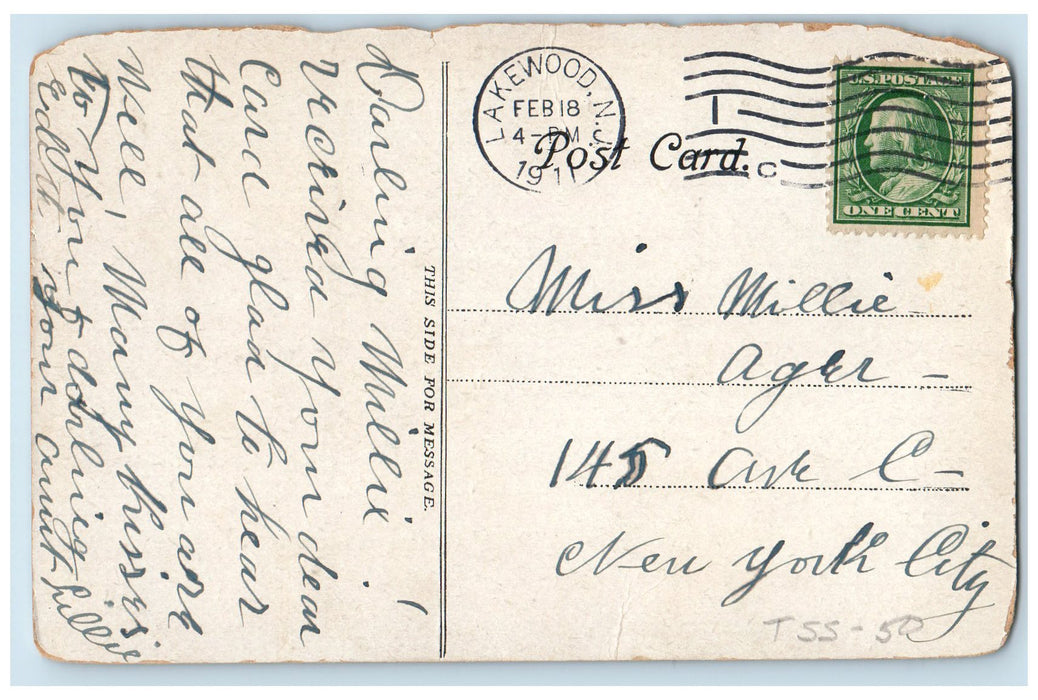 Darling Millie!
Received your dear
Card glad to hear
that all of you are
well! Many kisses
to you darling
your aunt Lillie
THIS SIDE FOR MESSAGE.
LAKEWOOD, N.J.
FEB 18
4-PM
1911
Post Card.
C
U.S. POSTAGE
ONE CENT
Miss Millie
Ager -
145 Ave C -
New York City
TSS-50